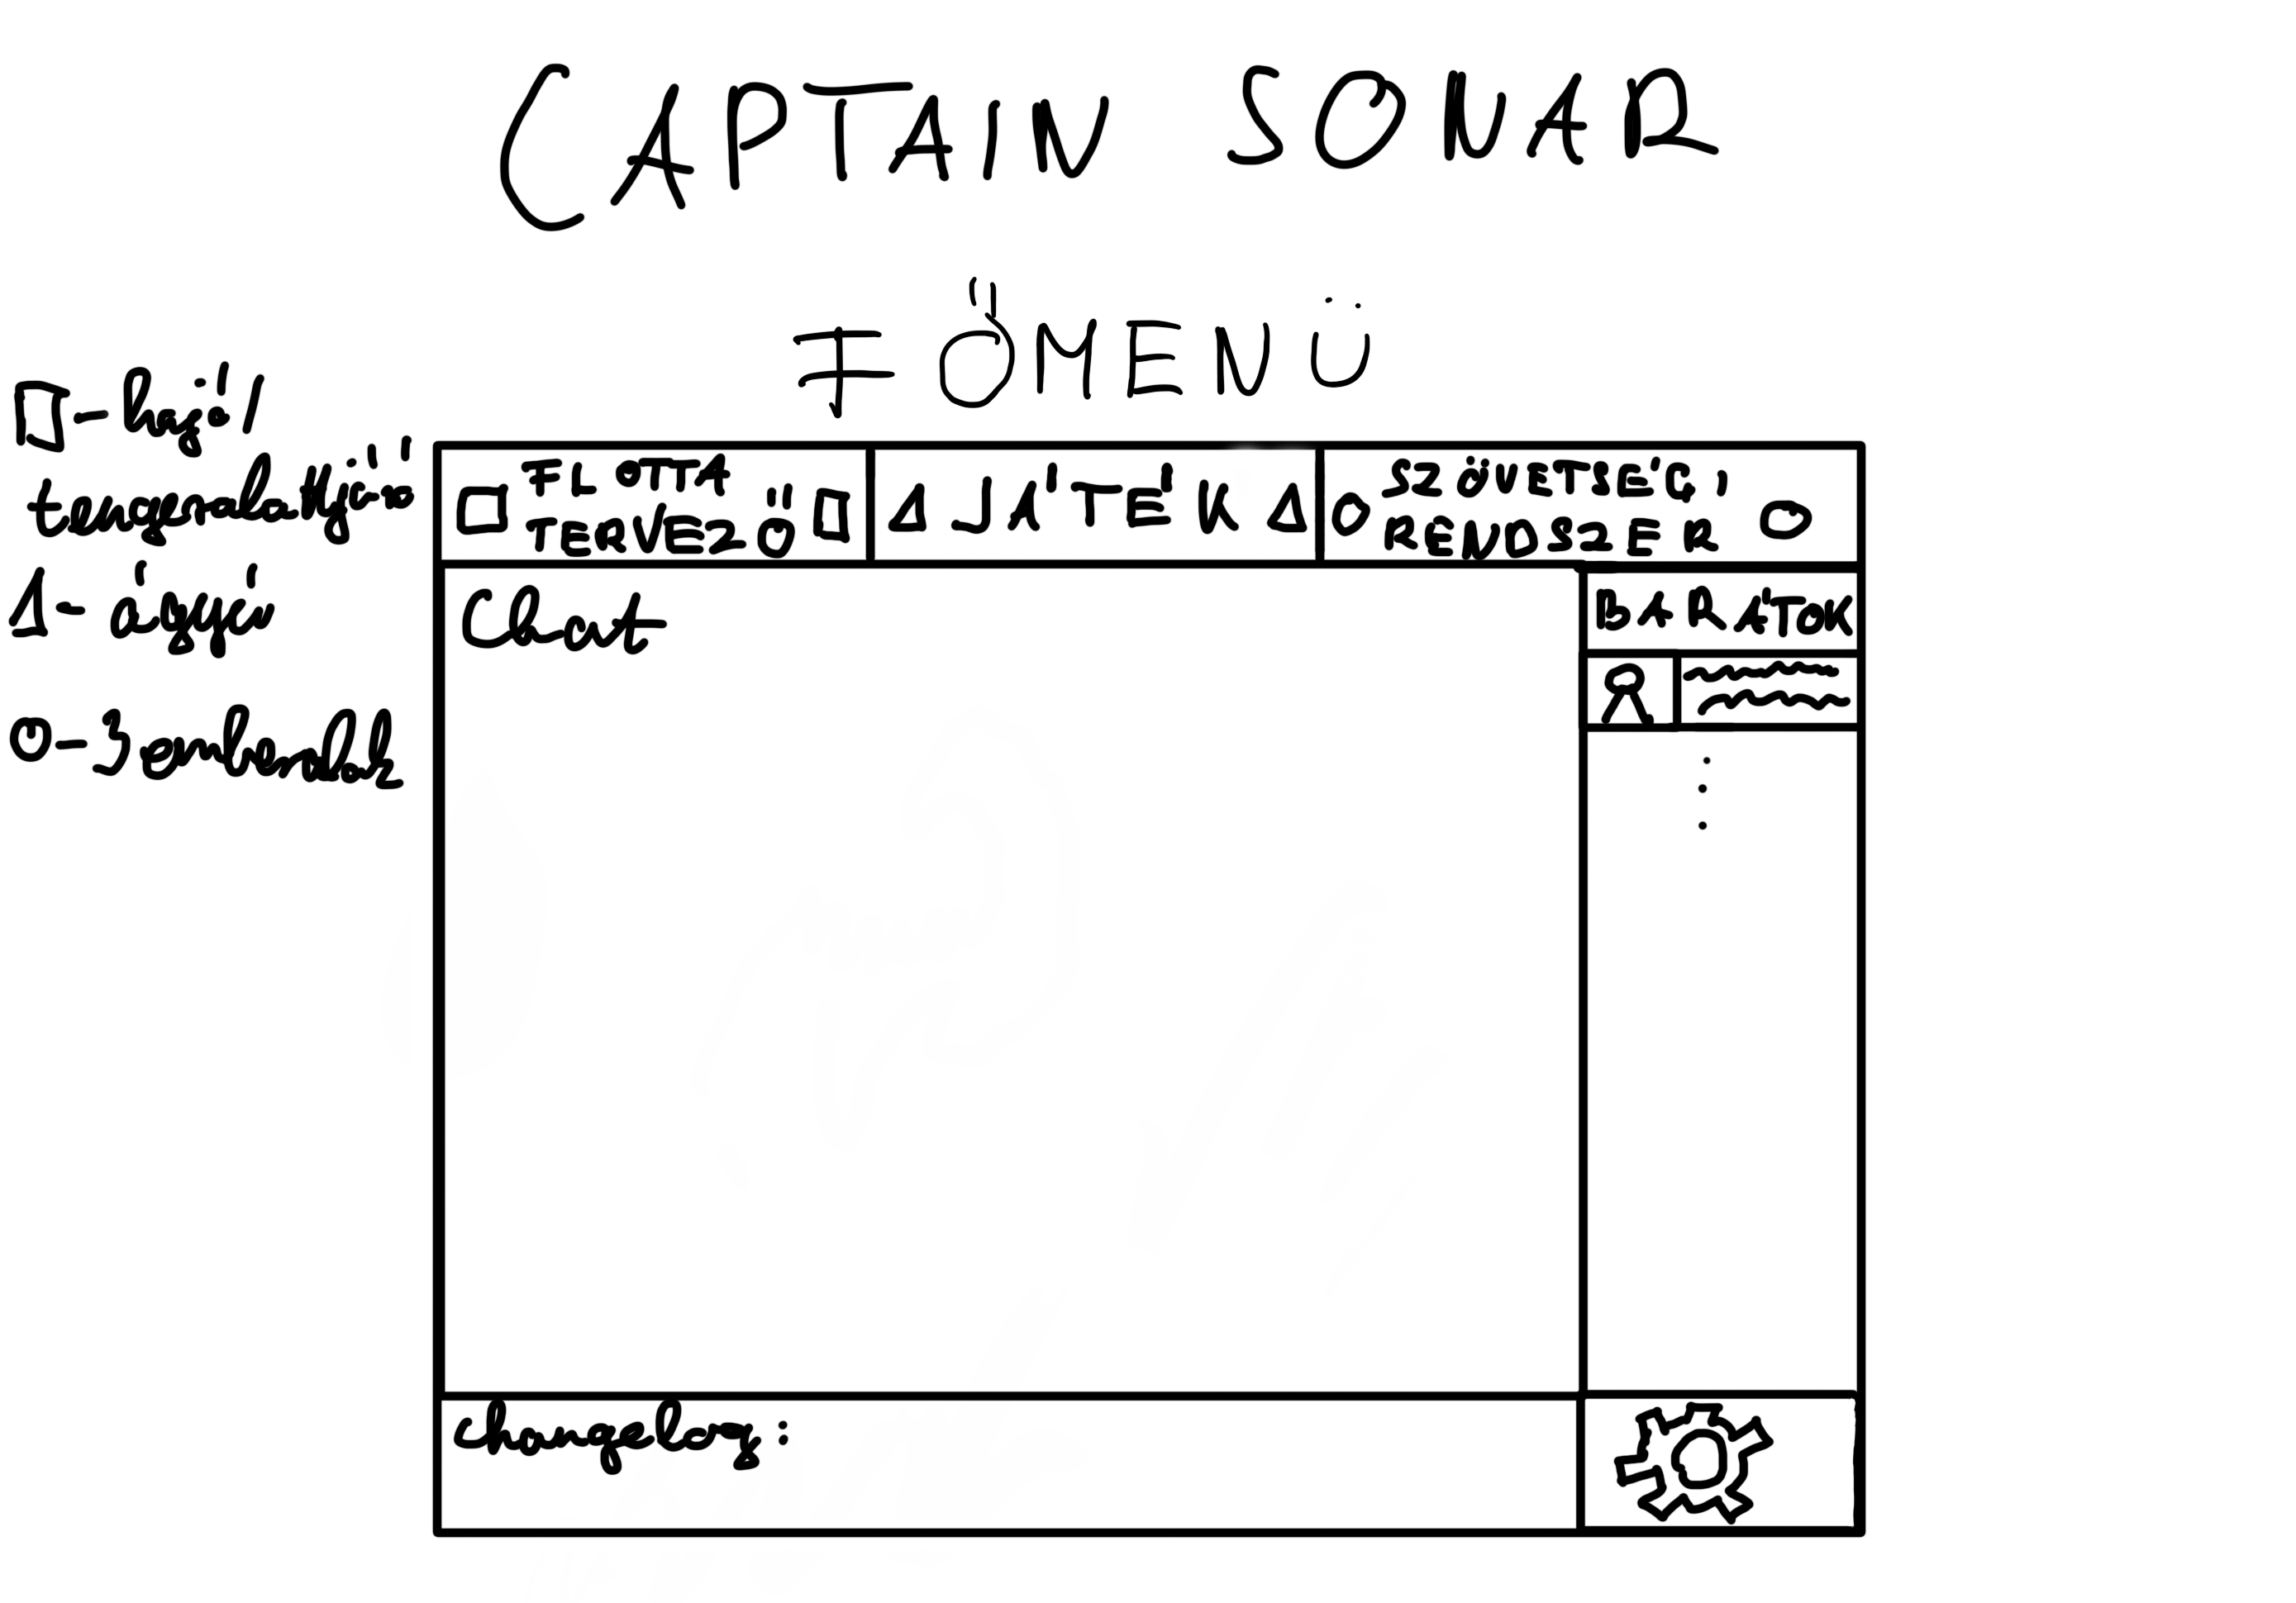 CAPTAIN SONAR
FŐMENÜ
□-hajó/
tengeralattjáró
Δ-ágyú
O-3 emberalak
□ FLOTTA TERVEZŐ □
Δ JÁTÉK Δ
O SZÖVETSÉGI RENDSZER O
Chat
BARÁTOK
changelog: